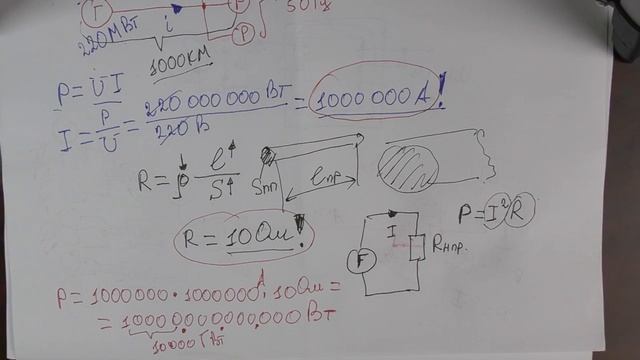 Г
50Гц
220МВт
i
Р
1000км
P=UI
I = P/U = 220 000 000 Вт / 220 В = 1000 000 А!
R = ρ l/S
Sпп
lпр
P=I²R
R = 10 Ом!
I
Rнпр.
Г
P = 1000000·1000000 А·10 Ом =
= 10000.000.000.000 Вт
10000 ГВт